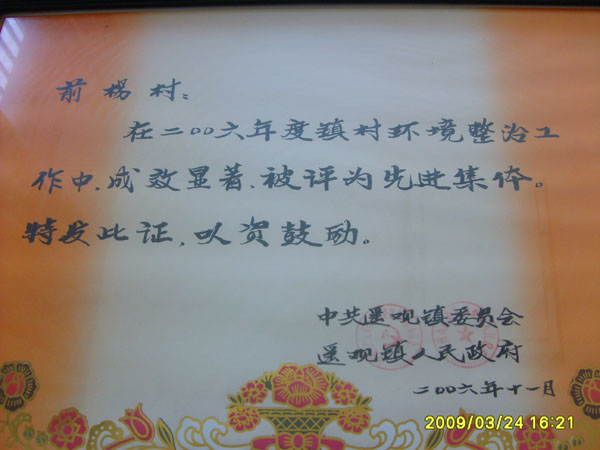 前楊村：
在二〇〇六年度镇村环境整治工
作中,成效显著,被评为先进集体。
特发此证,以资鼓励。
中共遥观镇委员会
遥观镇人民政府
二〇〇六年十一月
2009/03/24 16:21